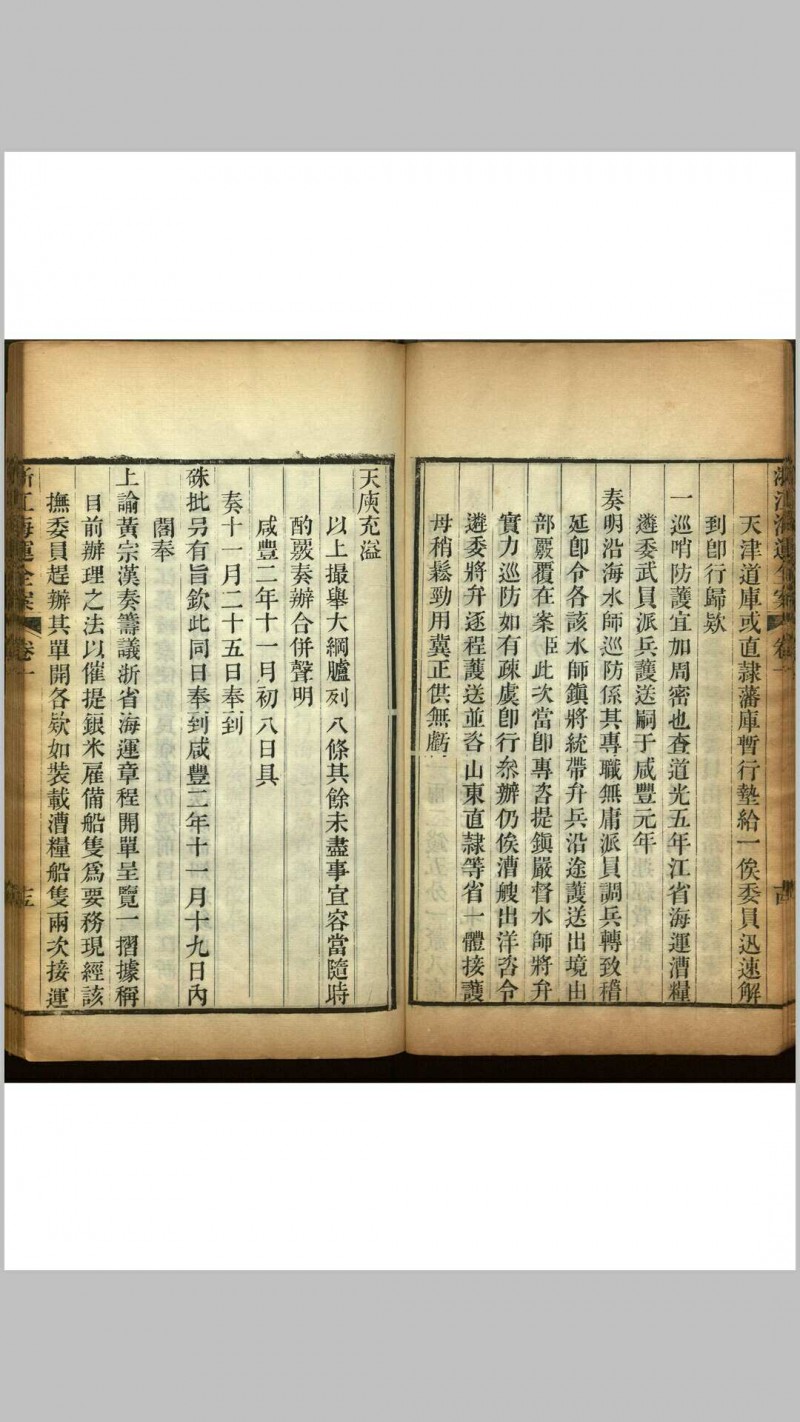 天津道庫或直隸藩庫暫行墊給一俟委員迅速解
到卽行歸欵
一巡哨防護宜加周密也查道光五年江省海運漕糧
遴委武員派兵護送嗣于咸豐元年
奏明沿海水師巡防係其專職無庸派員調兵轉致稽
延卽令各該水師鎮將統帶弁兵沿途護送出境由
部覈覆在案臣此次當卽專咨提鎮嚴督水師將弁
實力巡防如有疎虞卽行叅辦仍俟漕艘出洋咨令
遴委將弁逐程護送並咨山東直隸等省一體接護
毋稍鬆勁用冀正供無虧
天庾充溢
以上撮舉大綱臚列八條其餘未盡事宜容當隨時
酌覈奏辦合併聲明
咸豐二年十一月初八日具
奏十一月二十五日奉到
硃批另有旨欽此同日奉到咸豐二年十一月十九日內
閣奉
上諭黃宗漢奏籌議浙省海運章程開單呈覽一摺據稱
目前辦理之法以催提銀米雇備船隻爲要務現經該
撫委員趕辦其單開各欵如裝載漕糧船隻兩次接運
浙江海運全案 卷一